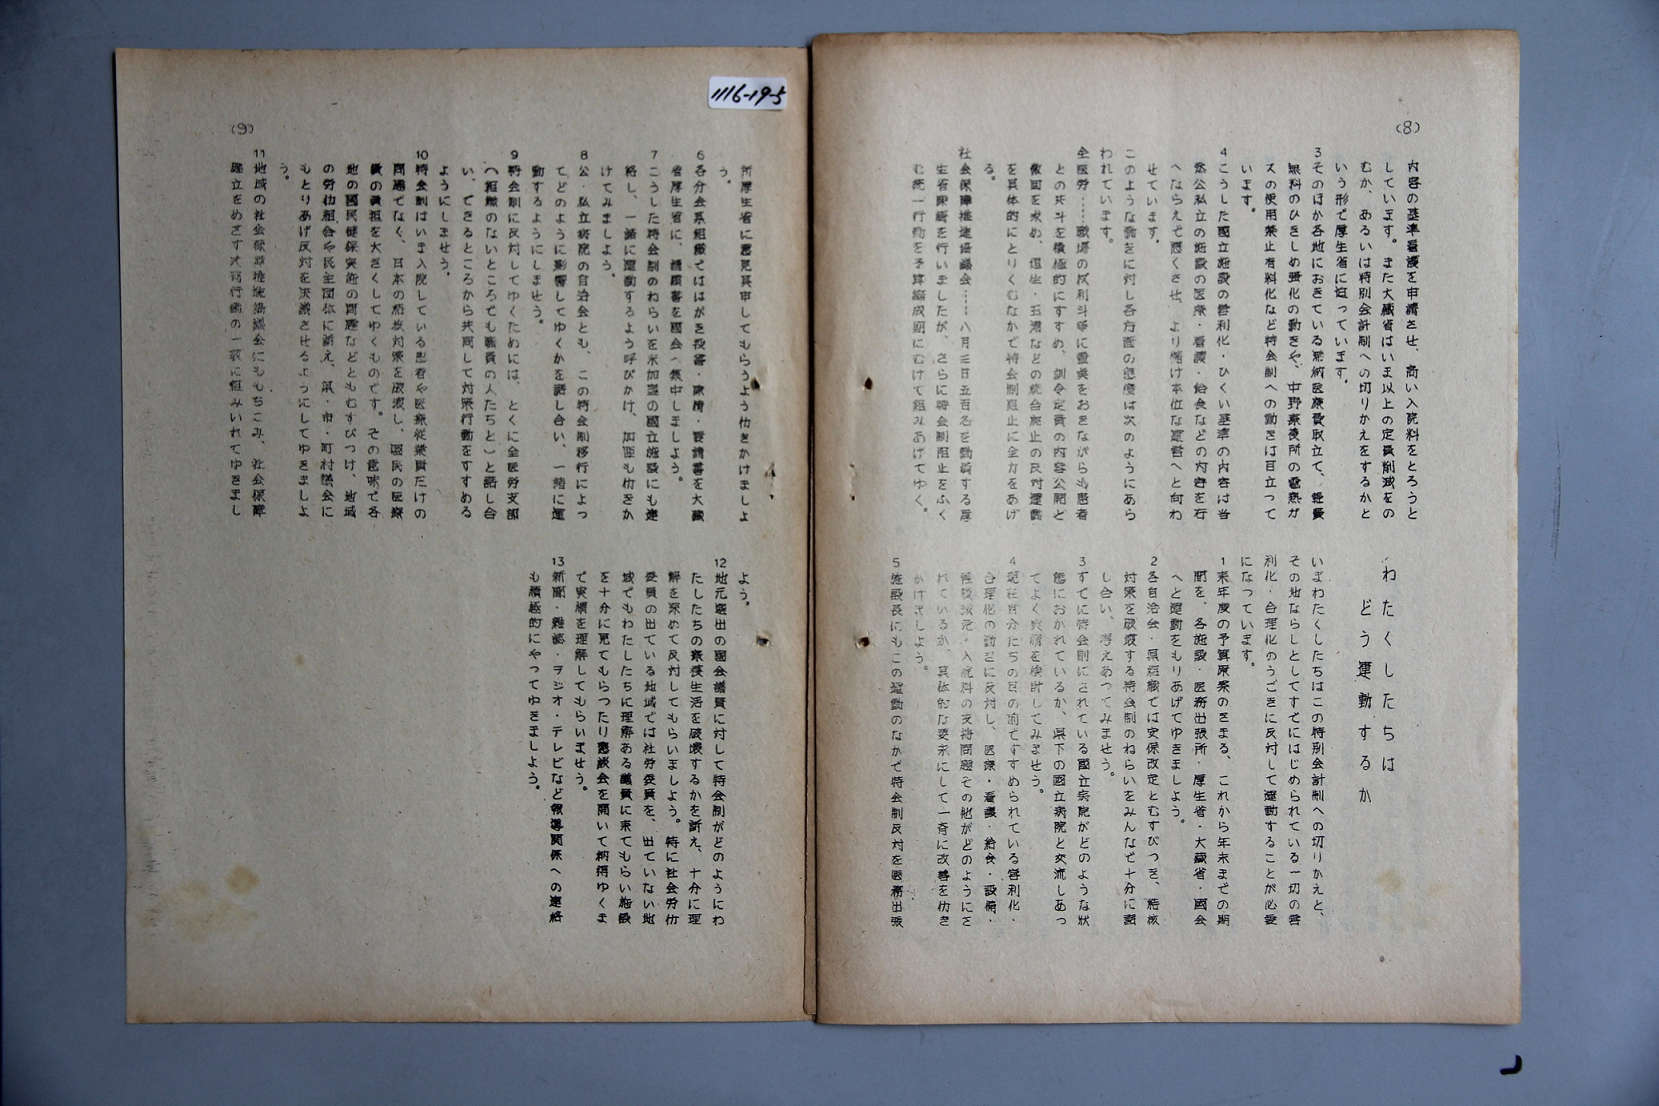 (8)
内容の基準看護を申請させ、高い入院料をとろうと
しています。また大蔵省はいま以上の定員削減をの
むか、あるいは特別会計制への切りかえをするかと
いう形で厚生省に迫っています。
3 そのほか各地におきている滞納医療費取立て、経費
無料のひきしめ強化の動きや、中野療養所の電熱ガ
スの使用禁止有料化など特会制への動きは目立って
います。
4 こうした国立施設の営利化・ひくい基準の内容は当
然公私立の施設の医療・看護・給食などの内容を右
へならえで悪くさせ、より儲け本位な運営へと向わ
せています。
このような動きに対し各方面の態度は次のようにあら
われています。
全医労……職場の反利斗争に重点をおきながらも患者
との共斗を積極的にすすめ、訓令定員の内容公開と
撤回を求め、転生・玉浦などの統合廃止の反対運動
を具体的にとりくむなかで特会制阻止に全力をあげ
る。
社会保障推進協議会……八月三日五百名を動員する厚
生省陳情を行いましたが、さらに特会制阻止をふく
む統一行動を予算編成期にむけて組みあげてゆく。
わたくしたちは
どう運動するか
いまわたくしたちはこの特別会計制への切りかえと、
その地ならしとしてすでにはじめられている一切の営
利化・合理化のうごきに反対して運動することが必要
になっています。
1 来年度の予算原案のきまる、これから年末までの期
間を、各施設・医務出張所・厚生省・大蔵省・国会
へと運動をもりあげてゆきましよう。
2 各自治会・県組織では安保改定とむすびつき、結核
対策を破壊する特会制のねらいをみんなで十分に討
し合い、考えあってみませう。
3 すでに特会制にされている国立病院がどのような状
態におかれているか、県下の国立病院と交流しあっ
てよく実情を検討してみませう。
4 現在自分たちの目の前ですすめられている営利化・
合理化の動きに反対し、医療・看護・給食・設備・
種設状況・入院料の支待問題その他がどのようにさ
れているか、具体的な要求にして一斉に改善を仂き
かけましよう。
5 施設長にもこの運動のなかで特会制反対を医務出張
(9)
1116-19-5
所厚生省に意見具申してもらうよう仂きかけましよ
う。
6 各分会系組織でははがき投書・陳情・要請書を大蔵
省厚生省に、請願書を国会へ集中しましよう。
7 こうした特会制のねらいを未加盟の国立施設にも連
絡し、一諸に運動するよう呼びかけ、加盟も仂きか
けてみましよう。
8 公・私立病院の自治会とも、この特会制移行によっ
てどのように影響してゆくかを話し合い、一緒に運
動するようにしませう。
9 特会制に反対してゆくためには、とくに全医労支部
(組織のないところでも職員の人たちと)と話し合
い、できるところから共同して対策行動をすすめる
ようにしませう。
10 特会制はいま入院している患者や医療従業員だけの
問題でなく、日本の結核対策を破壊し、国民の医療
費の負担を大きくしてゆくものです。その意味で各
地の国民健保実施の問題などともむすびつけ、地域
の労仂組合や民主団体に訴え、県・市・町村議会に
もとりあげ反対を決議させるようにしてゆきましよ
う。
11 地域の社会保障推進協議会にももちこみ、社会保障
確立をめざす大衆行動の一環に組みいれてゆきまし
よう。
12 地元選出の国会議員に対して特会制がどのようにわ
たしたちの療養生活を破壊するかを訴え、十分に理
解を深めて反対してもらいましよう。特に社会労仂
委員の出ている地域では社労委員を、出ていない地
域でもわたしたちに理解ある議員に来てもらい施設
を十分に見てもらったり懇談会を開いて納得ゆくま
で実績を理解してもらいませう。
13 新聞・雑誌・ラジオ・テレビなど報導関係への連絡
も積極的にやってゆきましよう。